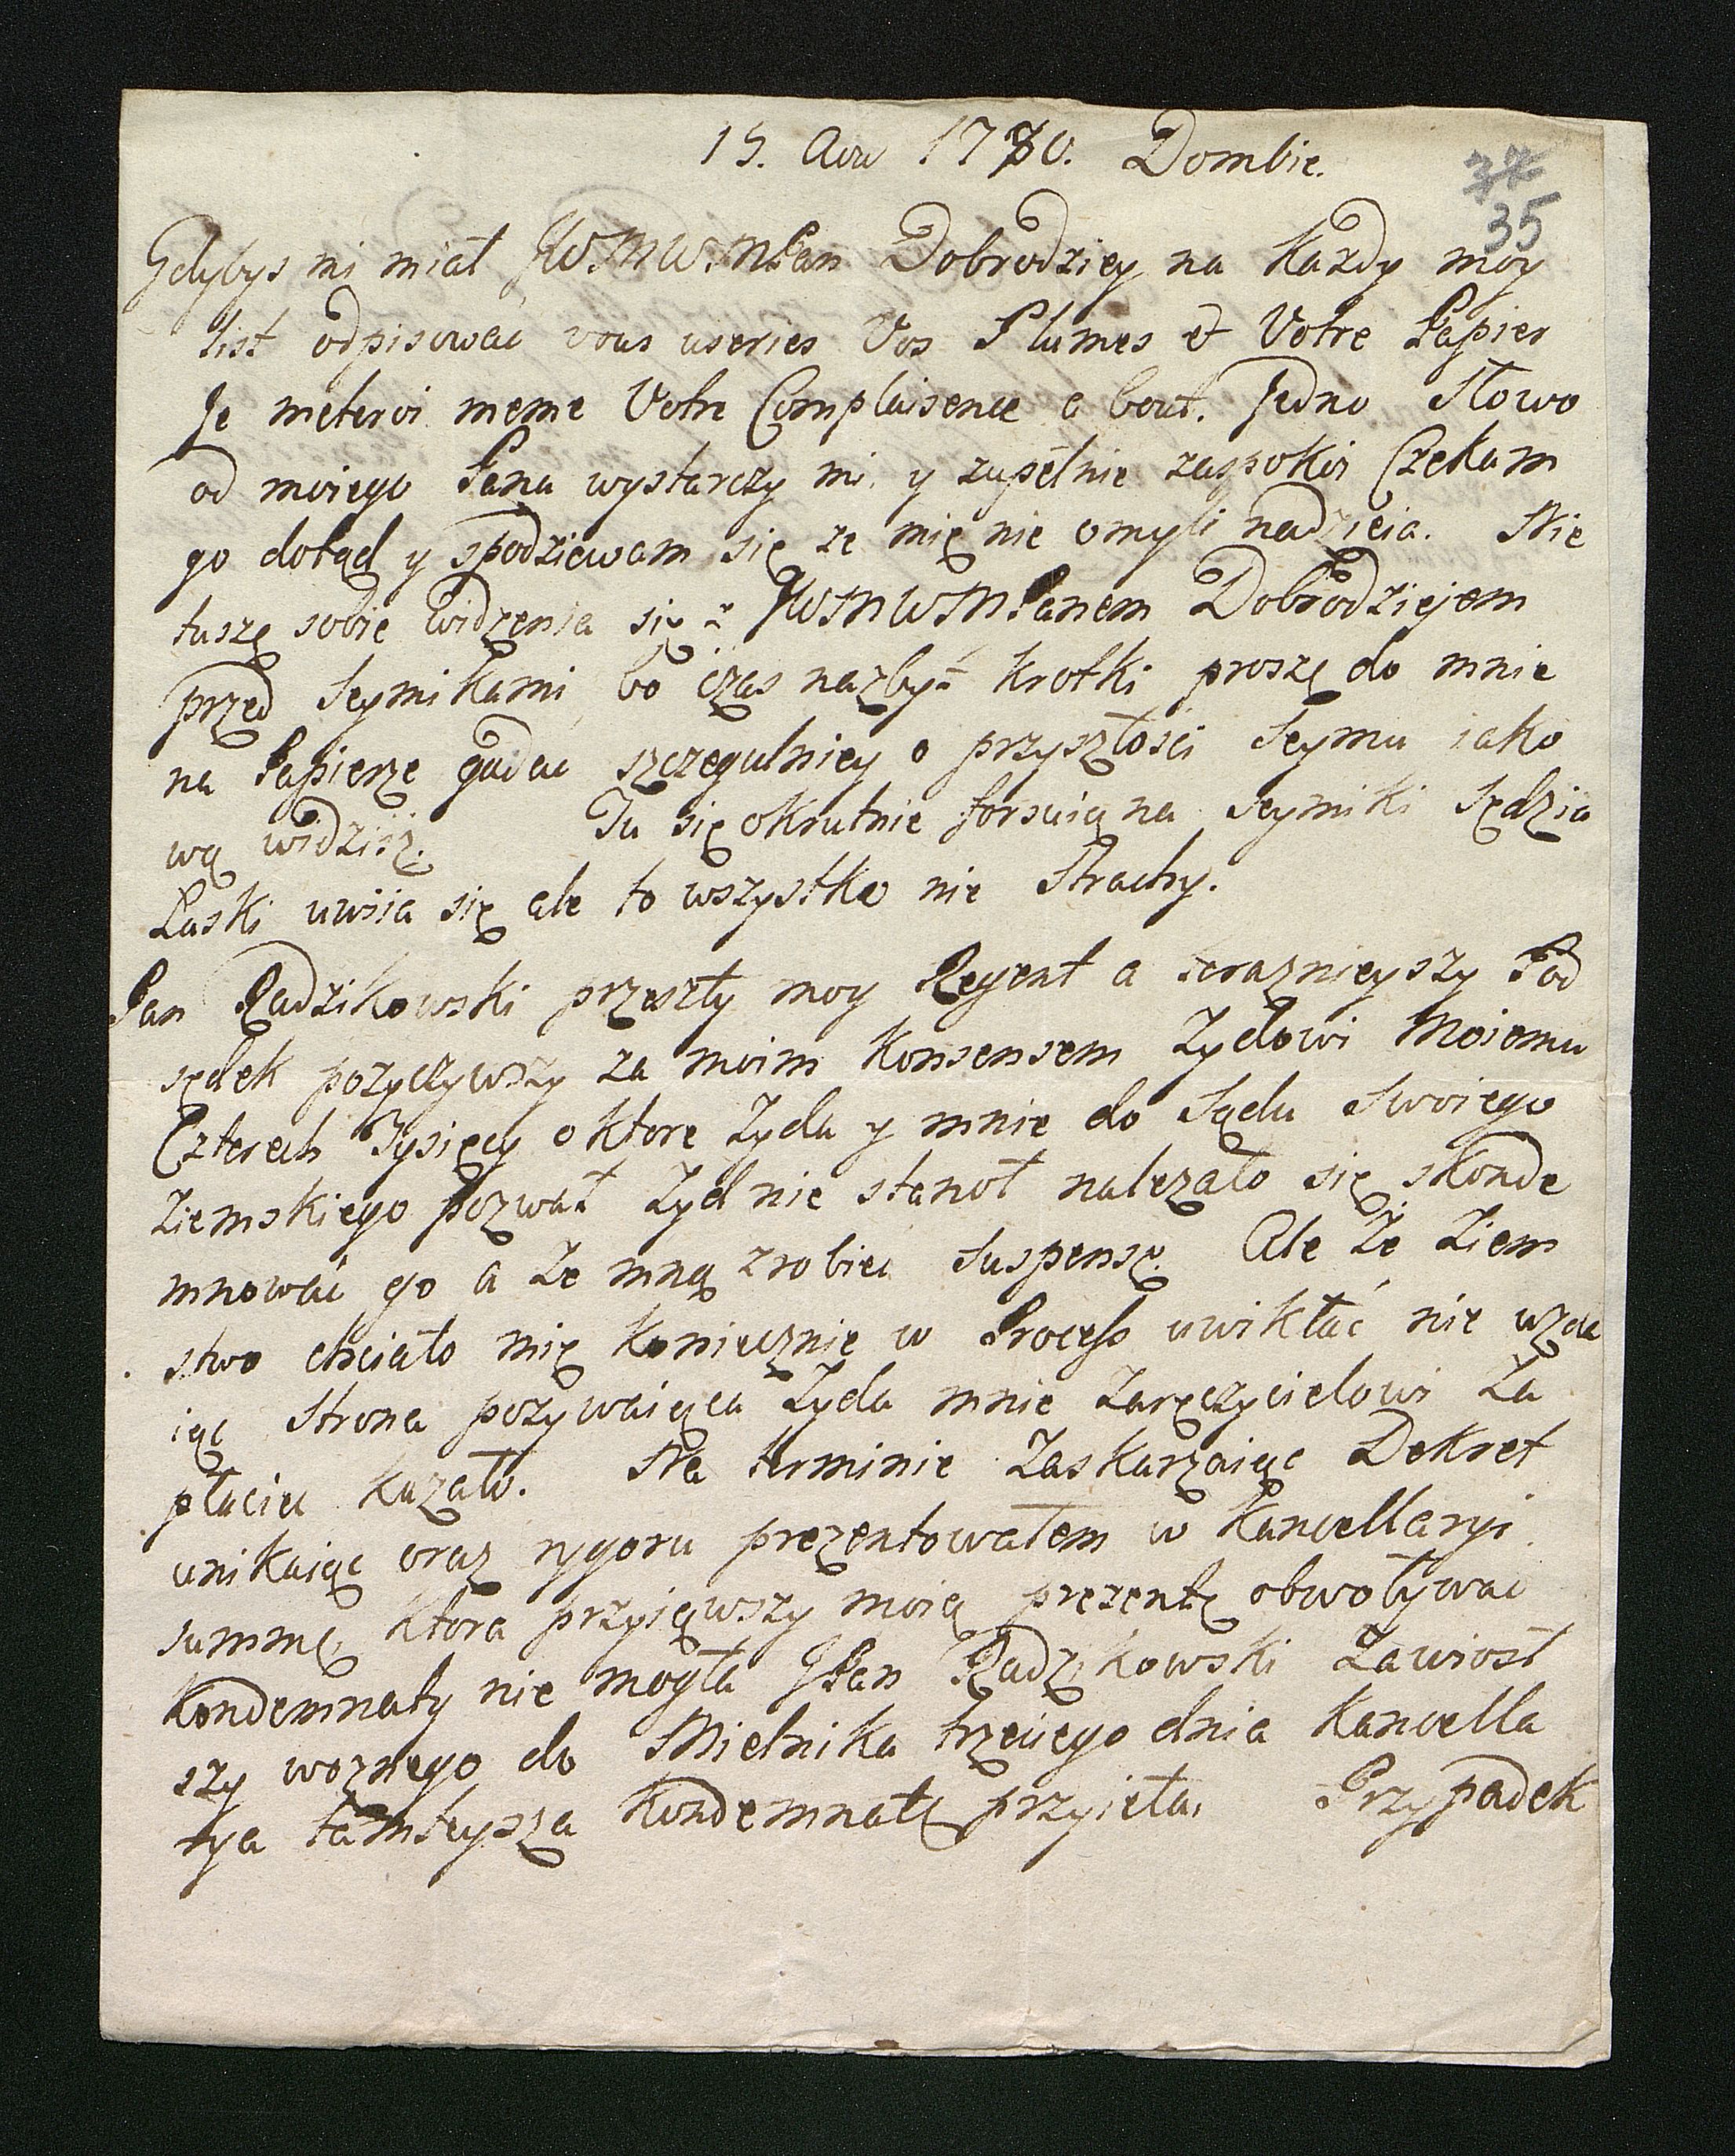 15. Aou 1780. Dombie.
37
35
Gdybys mi miał JWMWMPan Dobrodziey na każdy moy
list odpisować vous useries Vos Plumes et Votre Papier
Je meteroi meme Votre Complaisence a bout. Jedno Słowo
od moiego Pana wystarczy mi y zupełnie zaspokoi Czekam
go dotąd y spodziewam się ze mię nie omyli nadzieia. Nie
tuszę sobie widzenia się z JWMWMPanem Dobrodziejem
przed Seymikami bo czas nazbyt krotki proszę do mnie
na Papierze gadać szczegulniey o przyszłości Seymu iako
wą widzisz. Tu się okrutnie forsuią na Seymiki Sędzia
Laski uwiia się ale to wszystko nie Strachy.
Pan Radzikowski przeszły moy Regent a teraznieyszy Pod
sędek pozyczywszy za moim Konsensem Zydowi Moiemu
Czterech Tysięcy o ktore Zyda y mnie do Sądu Swoiego
Ziemskiego Pozwał Zyd nie stanoł nalezało się skonde
mnować go a Ze mną zrobić Suspensę. Ale Ze Ziem
stwo chciało mię koniecznie w Process uwikłać nie wzda
iąc Strona pozywaiąca Zyda mnie Zaręczycielowi Za
płacić kazało. Na terminie Zaskarzaiąc Dekret
unikaiąc oraz rygoru prezentowałem w Kancellaryi
summę, ktora przyiąwszy moią prezentę obwoływać
Kondemnaty nie mogła JPan Radzikowski Zawiosł
szy woznego do Mielnika trzeciego dnia Kancella
rya tamteysza Kondemnatę przyieła. Przypadek